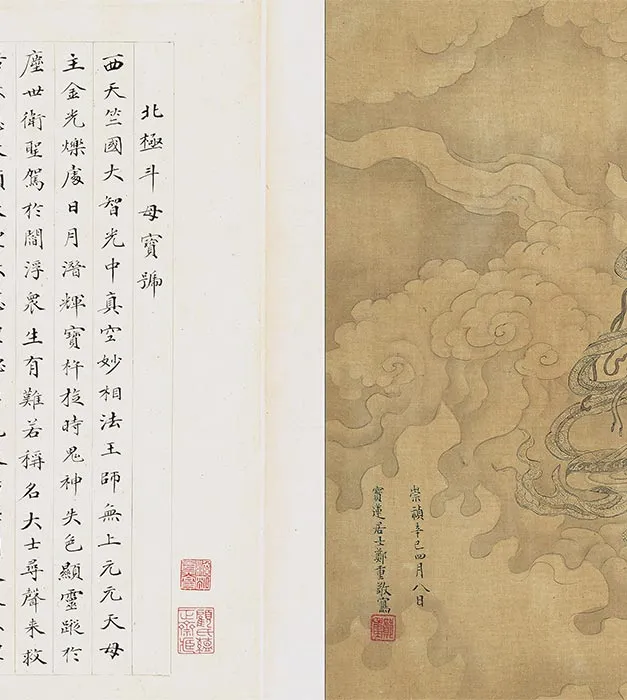 崇禎辛巳四月八日
寶蓮居士鄭重敬寫
北極斗母寶號
西天竺國大智光中真空妙相法王師無上元元天母
主金光爍處日月潛輝寶杵旋時鬼神失色顯靈蹤於
塵世衛聖駕於閻浮衆生有難若稱名大士尋聲来救